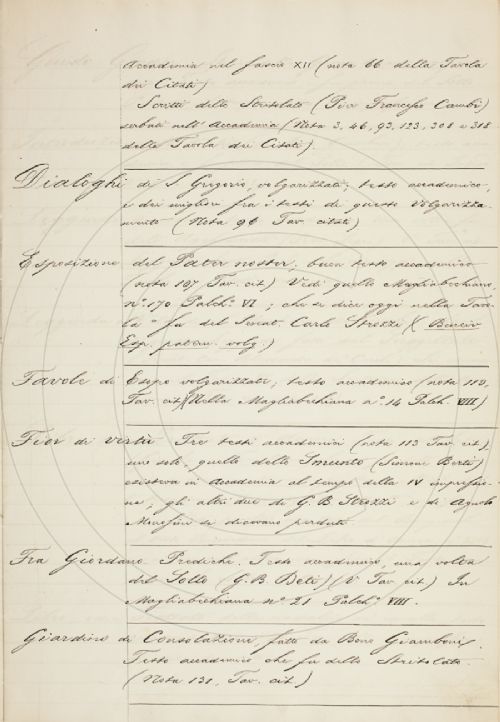 Accademia nel fascio XII (nota 66 della Tavola
dei Citati)
Scritti dello Stritolato (Pier Francesco Cambi)
serbati nell' Accademia (Nota 3, 46, 93, 123, 308 e 318
della Tavola dei Citati).
Dialoghi di S. Grigorio, volgarizzati; testo accademico,
e dei migliori fra i testi di questo Volgarizza-
mento (Nota 96 Tav. citati)
Esposizione del Pater noster; buon testo accademico
(nota 107 Tav. cit) Vedi quello Magliabechiano,
n.º 170 Palch.º VI; che si dice oggi nella Tavo-
la " fu del Senat. Carlo Strozzi" (
Esp. patern. volg.)
Favole di Esopo volgarizzate; testo accademico (nota 110,
Tav. cit.) (Nella Magliabechiana nº 14 Palch. VIII)
Fior di virtù Tre testi accademici (nota 113 Tav. cit.)
uno solo, quello dello Smunto (Simone Berti)
esisteva in Accademia al tempo della IV impressio-
ne; gli altri due di G. B. Strozzi e di Agnolo
si dicevano perduti
Fra Giordano Prediche. Testo accademico, una volta
del Sollo (G. B. Deti) (V. Tav. cit) In
Magliabechiana nº 21 Palch.º VIII.
Giardino di Consolazione fatto da Bono Giamboni.
Testo accademico che fu dello Stritolato
(Nota 131, Tav. cit.)